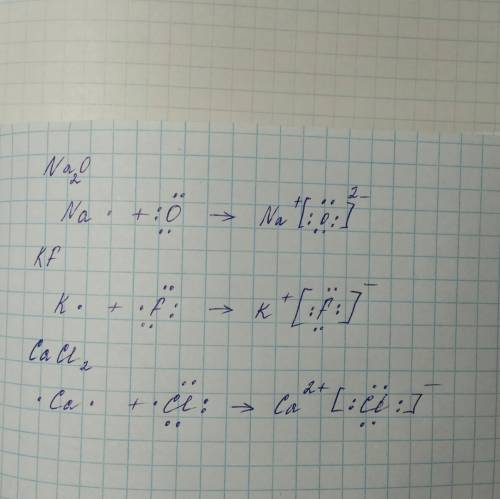 Na₂O
Na · + :Ö: → Na⁺[:Ö:]²⁻
KF
K · + ·F̈: → K⁺[:F̈:]⁻
CaCl₂
·Ca· + ·C̈l: → Ca²⁺[:C̈l:]⁻